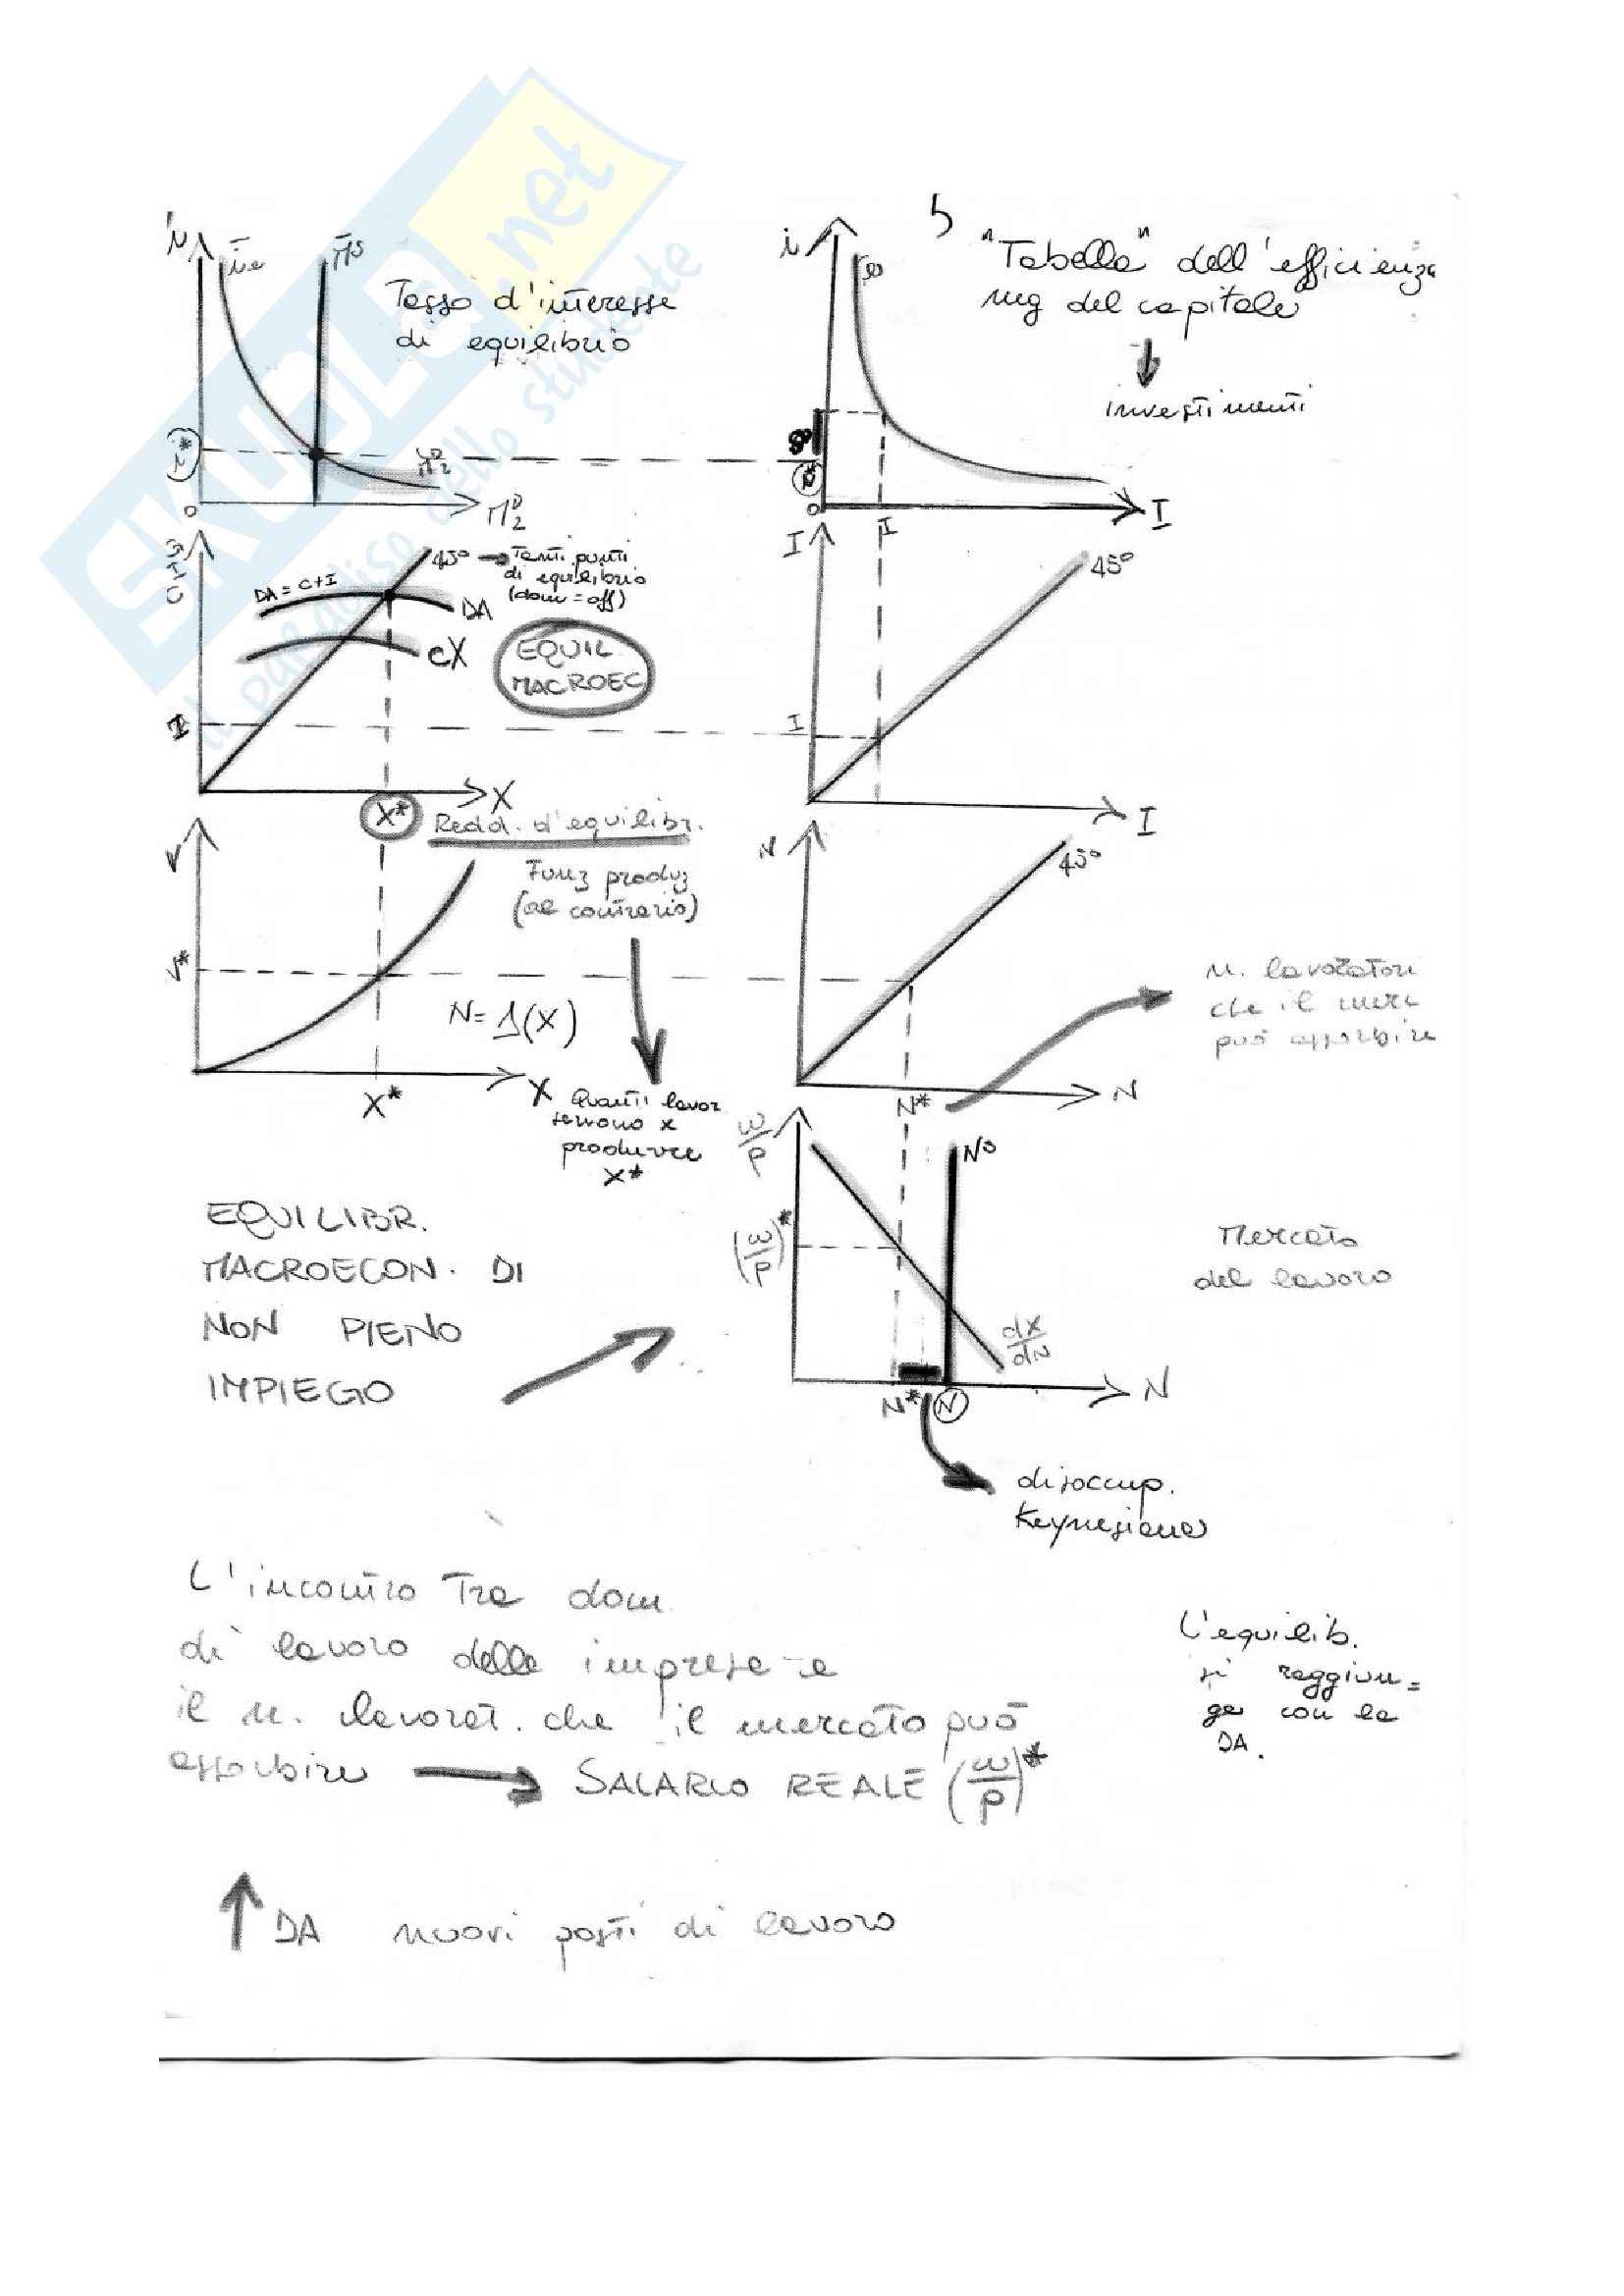 5
i
Tasso d'interesse
di equilibrio
i*
0
M₂ᴰ
i
"Tabella" dell'efficienza
mg del capitale
investimenti
i*
0
I
I
C+I
45° → Tanti punti
di equilibrio
(dom = off)
DA = C+I
DA
cX
EQUIL
MACROEC
I
X
X*
Redd. d'equilibr.
I
45°
I
I
N
Funz produz
(al contrario)
N*
N = f(X)
X
X*
Quanti lavor
servono x
produrre
X*
N
45°
N
N*
n. lavoratori
che il merc
può assorbire
w/p
Nˢ
(w/p)*
dX/dN
N
N*
N
Mercato
del lavoro
disoccup.
Keynesiana
EQUILIBR.
MACROECON. DI
NON PIENO
IMPIEGO
L'incontro tra dom
di lavoro delle imprese e
il n. lavorat. che il mercato può
assorbire → SALARIO REALE (w/p)*
L'equilib.
si raggiun=
ge con la
DA.
↑ DA nuovi posti di lavoro
SKUOLA.net
il paradiso dello studente